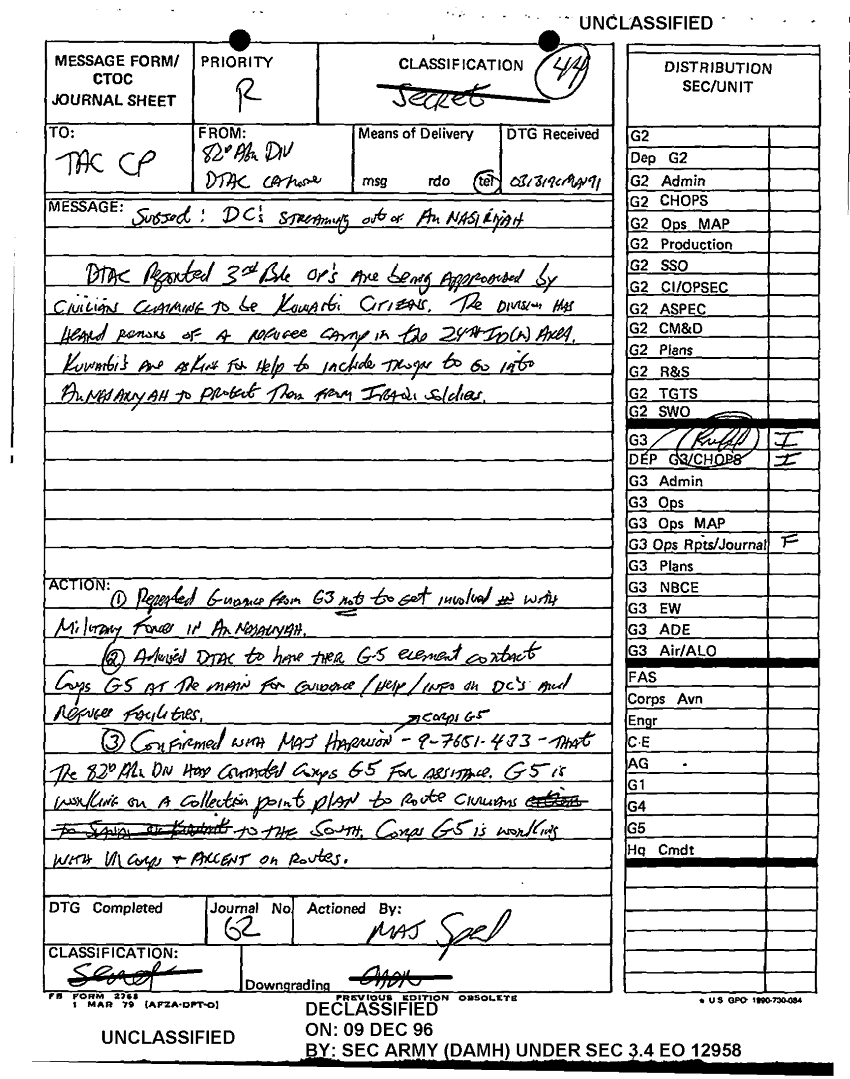 UNCLASSIFIED
MESSAGE FORM/
CTOC
JOURNAL SHEET
PRIORITY
R
CLASSIFICATION
Secret
44
TO:
TAC CP
FROM:
82D Abn DIV
DTAC
Means of Delivery
msg rdo tel
DTG Received
MESSAGE: Subject: DC's STREAMING out of An NASIRIYAH
DTAC Reported 3rd Bde OP's Are being Approached by
Civilians CLAIMING TO be Kuwaiti CITIZENS. The DIVISION HAS
Heard rumors OF A REFUGEE CAMP in the 24th ID(M) AREA.
Kuwaiti's Are ASKING FOR Help to include troops to Go into
An NASARIYAH to protect Them FROM IRAQI Soldiers.
ACTION:
① Repeated Guidance From G3 not to get involved with
Military Forces IN An NASARIYAH.
② Advised DTAC to have their G-5 element contact
Corps G5 AT The MAIN For Guidance / Help / INFO on DC's and
Refugee Facilities.
Corps G5
③ Confirmed with MAJ Harrison - 9-7651-433 - THAT
The 82D Abn DIV Had Contacted Corps G5 For ASSISTANCE. G5 is
working on A Collection point plAN to Route CIVILIANS
to THE South. Corps G5 is working
WITH VII Corps + ARCENT on Routes.
DTG Completed
Journal No.
62
Actioned By:
MAJ
CLASSIFICATION:
Secret
Downgrading
FB FORM 2768
1 MAR 79 (AFZA-DPT-O)
PREVIOUS EDITION OBSOLETE
DISTRIBUTION
SEC/UNIT
G2
Dep G2
G2 Admin
G2 CHOPS
G2 Ops MAP
G2 Production
G2 SSO
G2 CI/OPSEC
G2 ASPEC
G2 CM&D
G2 Plans
G2 R&S
G2 TGTS
G2 SWO
G3 I
DEP G3/CHOPS I
G3 Admin
G3 Ops
G3 Ops MAP
G3 Ops Rpts/Journal F
G3 Plans
G3 NBCE
G3 EW
G3 ADE
G3 Air/ALO
FAS
Corps Avn
Engr
C-E
AG
G1
G4
G5
Hq Cmdt
U S GPO 1990-730-084
UNCLASSIFIED
DECLASSIFIED
ON: 09 DEC 96
BY: SEC ARMY (DAMH) UNDER SEC 3.4 EO 12958